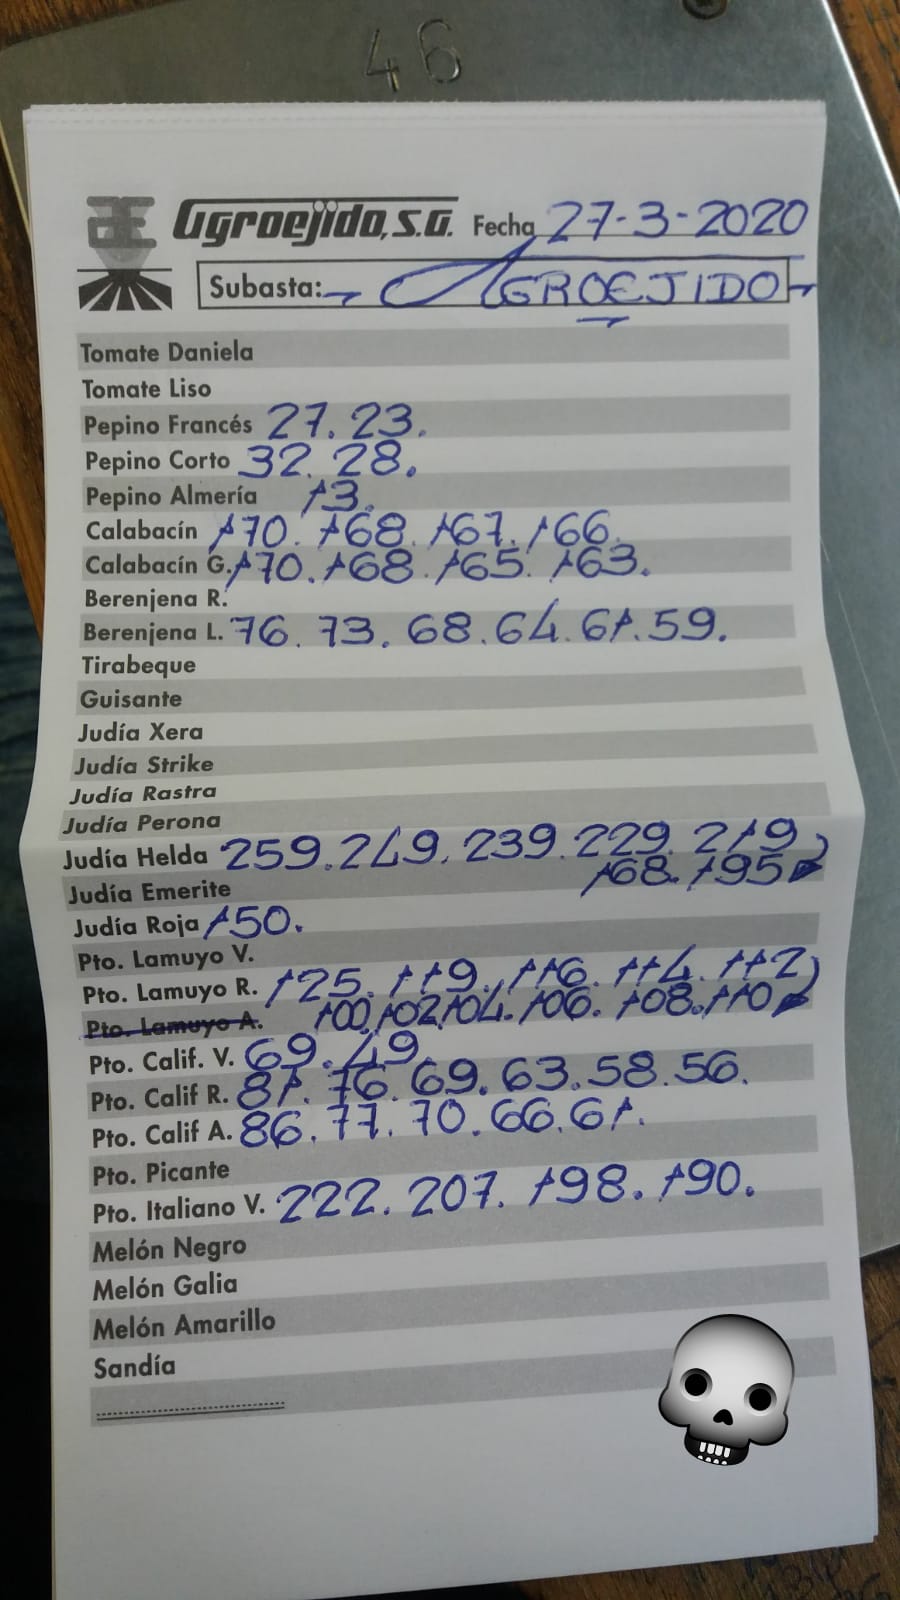 46
Agroejido, S.A. Fecha 27-3-2020
Subasta: AGROEJIDO
Tomate Daniela
Tomate Liso
Pepino Francés 27. 23.
Pepino Corto 32. 28.
Pepino Almería 13.
Calabacín 170. 168. 167. 166.
Calabacín G. 170. 168. 165. 163.
Berenjena R.
Berenjena L. 76. 73. 68. 64. 61. 59.
Tirabeque
Guisante
Judía Xera
Judía Strike
Judía Rastra
Judía Perona
Judía Helda 259. 249. 239. 229. 219
Judía Emerite 168. 195
Judía Roja 150.
Pto. Lamuyo V.
Pto. Lamuyo R. 125. 119. 116. 114. 112
Pto. Lamuyo A. 100. 102. 104. 106. 108. 110
Pto. Calif. V. 69. 49.
Pto. Calif R. 81. 76. 69. 63. 58. 56.
Pto. Calif A. 86. 77. 70. 66. 61.
Pto. Picante
Pto. Italiano V. 222. 207. 198. 190.
Melón Negro
Melón Galia
Melón Amarillo
Sandía